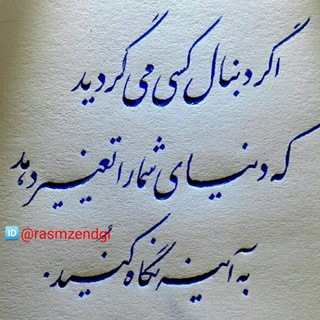 اگر دنبال کسی می گردید
که دنیای شما را تغییر دهد
🆔 @rasmzendgi
به آینه نگاه کنید.